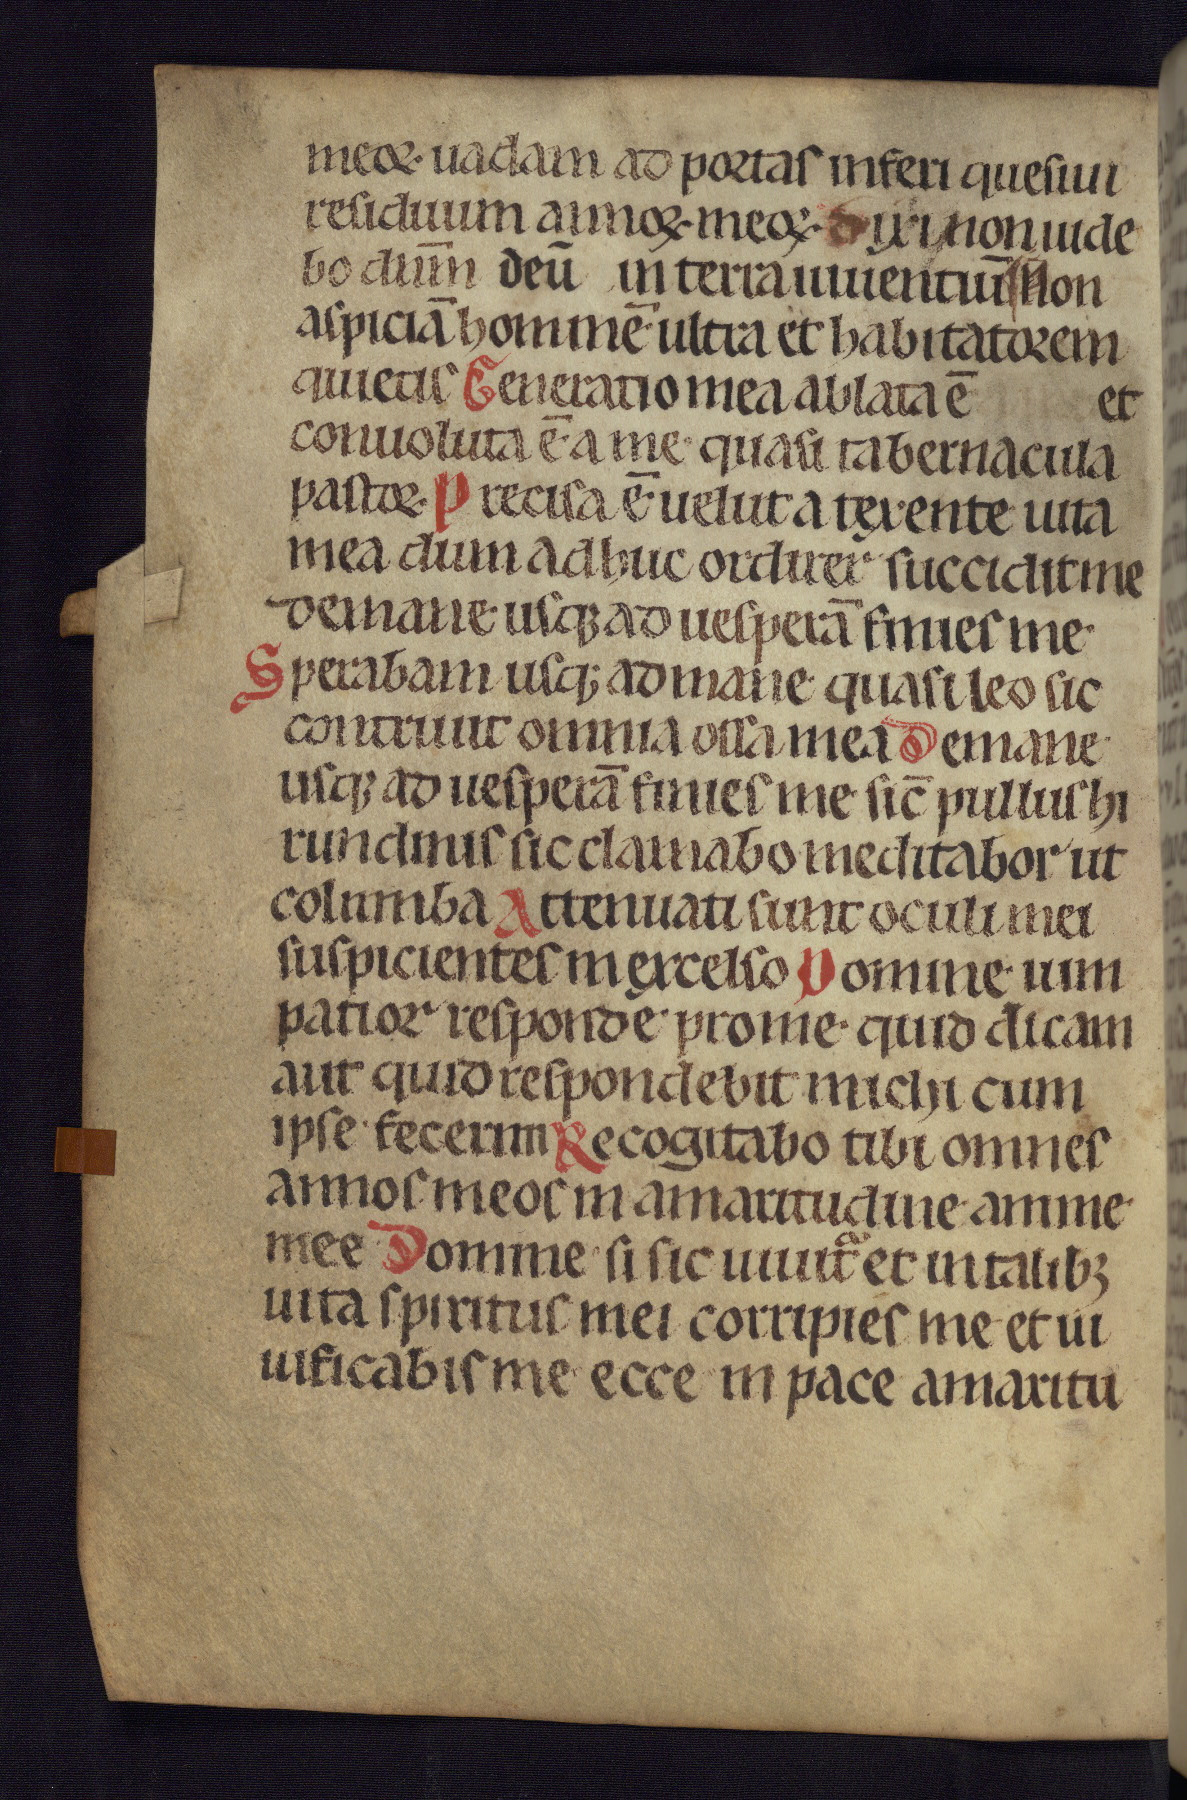 meoꝝ· uadam ad portas inferi quesiui
residuum annoꝝ· meoꝝ· dixi non uide
bo dūm deū in terra uiuentiū Non
aspiciā hominē· ultra et habitatorem
quietis Generatio mea ablata ē et
conuoluta ē· a me· quasi tabernacula
pastoꝝ· Precisa ē· uelut a texente uita
mea dum adhuc ordirer succidit me
demane· usqꝫ ad uesperā finies me·
Sperabam usqꝫ ad mane· quasi leo sic
contriuit omnia ossa mea Demane·
usqꝫ ad uesperā finies me· sic̄ pullus hi
rundinis sic clamabo meditabor ut
columba Attenuati sunt oculi mei
suspicientes in excelso Domine· uim
patior responde· pro me· quid dicam
aut quid respondebit michi cum
ipse· fecerim Recogitabo tibi omnes
annos meos in amaritudine· anime·
mee Domine· si sic uiuit᷑ et in talibꝫ
uita spiritus mei corripies me· et ui
uificabis me· ecce in pace amaritu